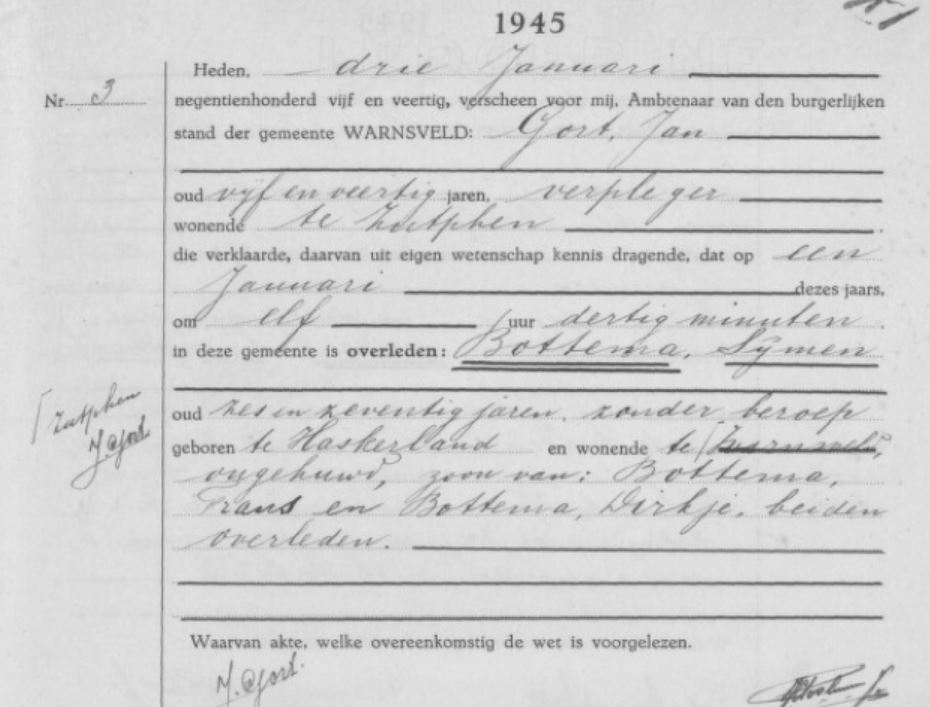 1945
Heden, drie Januari
Nr. 3
negentienhonderd vijf en veertig, verscheen voor mij, Ambtenaar van den burgerlijken
stand der gemeente WARNSVELD: Gort, Jan
oud vijf en veertig jaren, verpleger
wonende te Zutphen
die verklaarde, daarvan uit eigen wetenschap kennis dragende, dat op een
Januari dezes jaars,
om elf uur dertig minuten
in deze gemeente is overleden: Bottema, Sijmen
oud zes en zeventig jaren, zonder beroep
geboren te Haskerland en wonende te [Warnsveld,
ongehuwd, zoon van: Bottema,
Frans en Bottema, Dirkje, beiden
overleden.
[Zutphen
J Gort
Waarvan akte, welke overeenkomstig de wet is voorgelezen.
J. Gort.